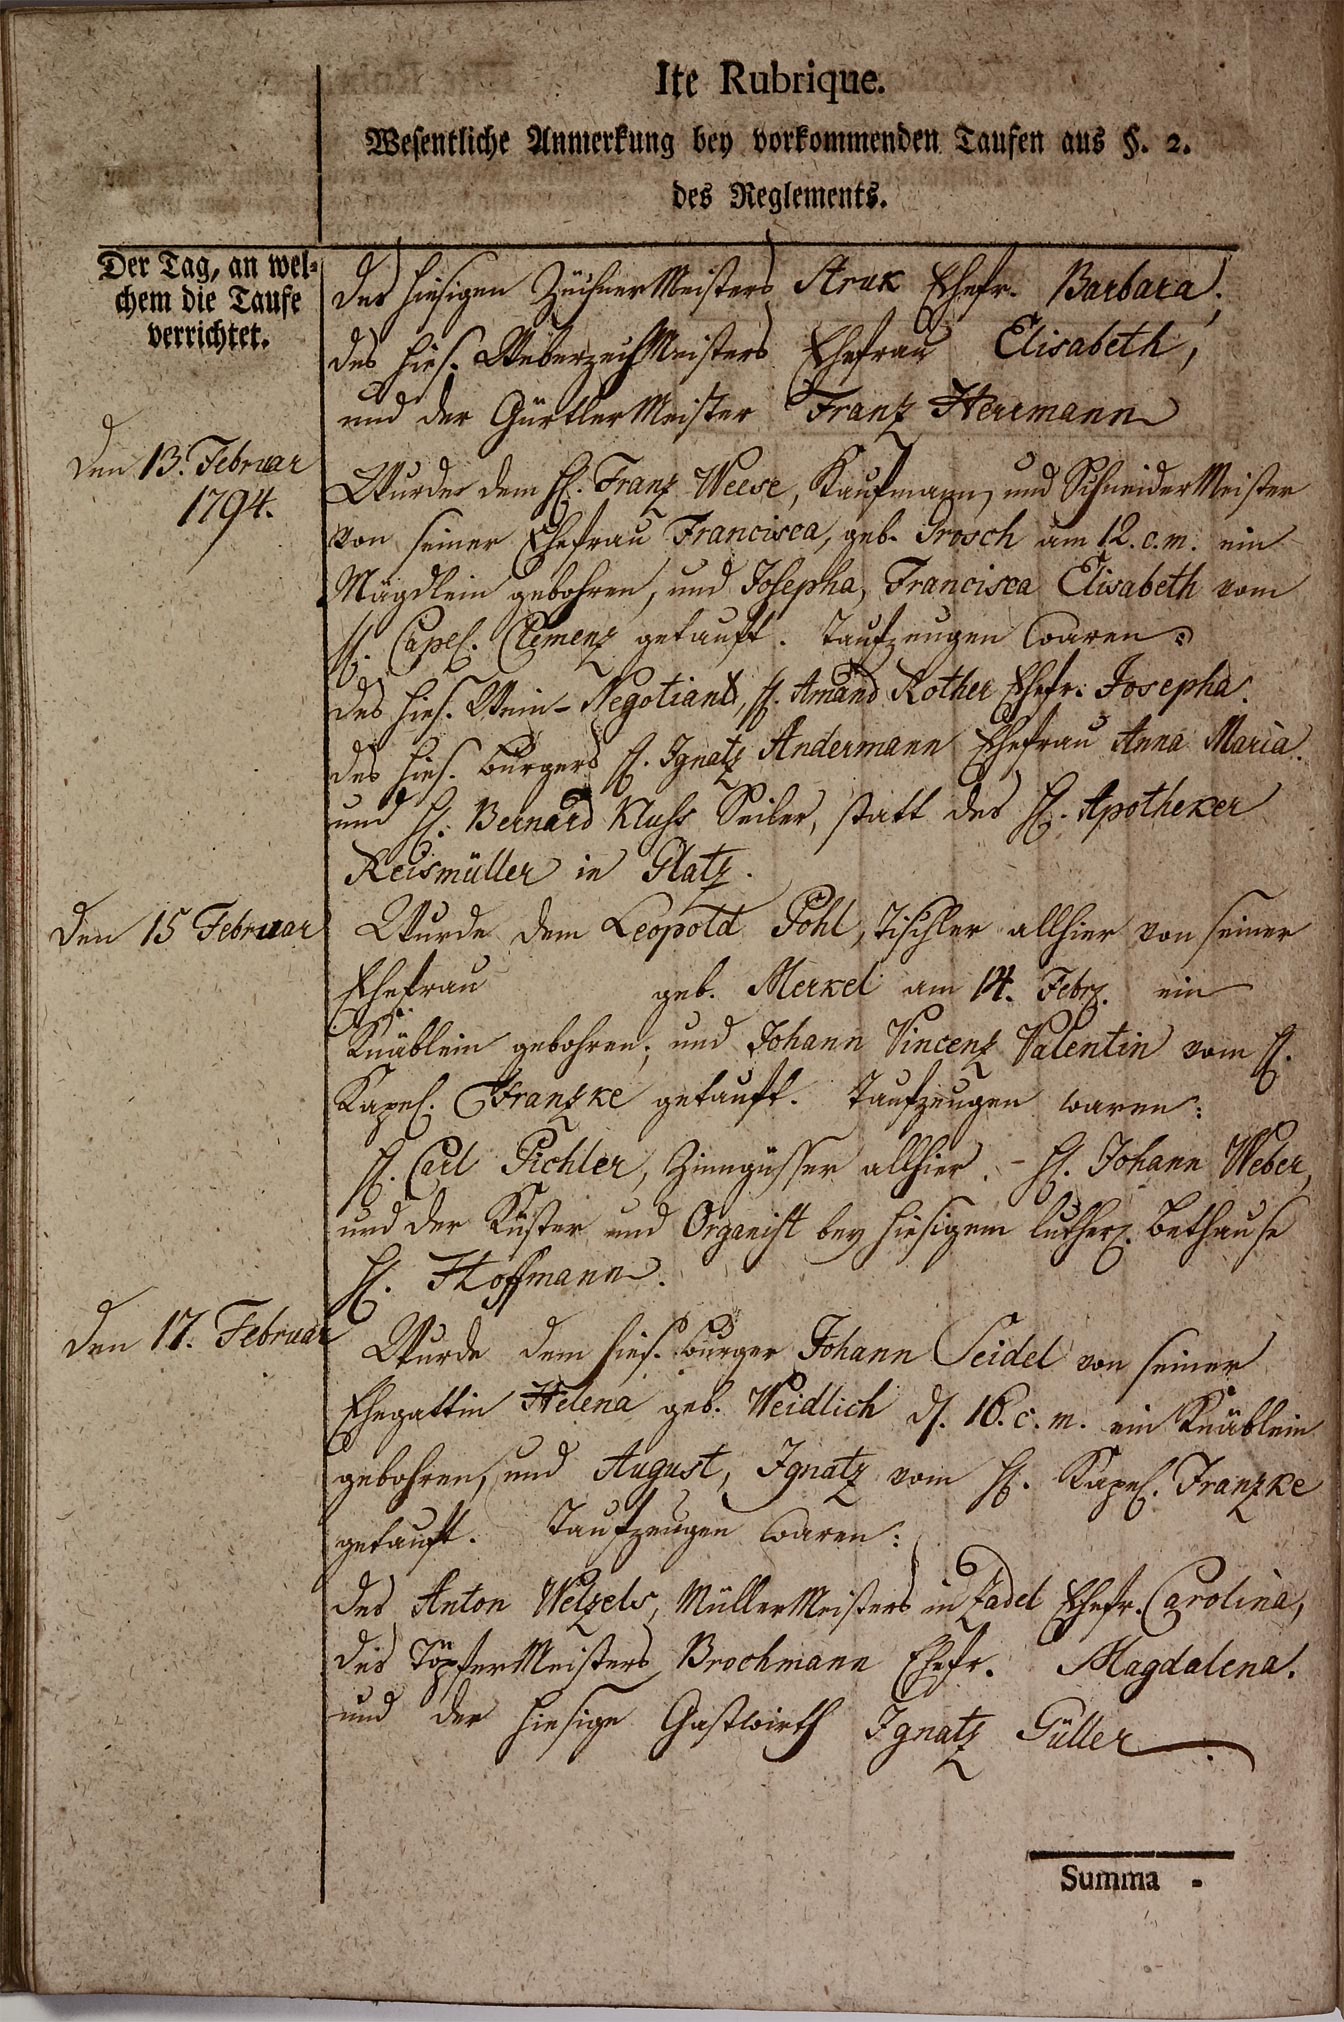 Ite Rubrique.
Wesentliche Anmerkung bey vorkommenden Taufen aus §. 2.
des Reglements.
Der Tag, an wel-
chem die Taufe
verrichtet.
des hiesigen ZüchnerMeisters Struk Ehefr. Barbara,
des hies. Meisters Ehefrau Elisabeth,
und der GürtlerMeister Franz Herrmann
den 13. Februar
1794.
Wurde dem H. Franz Weese, Kaufmann, und SchneiderMeister
von seiner Ehefrau Francisca, geb. Prosch am 12. c. m. ein
Mägdlein gebohren, und Josepha, Francisca Elisabeth vom
H. Capel. Clemenz getauft. Taufzeugen waren:
des hies. Wein-Negotiant, H. Amand Rother Ehefr. Josepha.
des hies. Burgers H. Ignatz Andermann Ehefrau Anna Maria.
und H. Bernard Kluhs Seiler, statt des H. Apotheker
Reismüller in Glatz.
den 15 Februar
Wurde dem Leopold Pohl, Tischler allhier von seiner
Ehefrau geb. Merkel am 14. Febr. ein
Knäblein gebohren, und Johann Vincenz Valentin vom H.
Kapel. Franzke getauft. Taufzeugen waren:
H. Carl Pichler, Zinngüsser allhier. - H. Johann Weber,
und der Küster und Organist bey hiesigem luther. Bethause
H. Hoffmann.
den 17. Februar
Wurde dem hies. Burger Johann Seidel von seiner
Ehegattin Helena geb. Weidlich d. 16. c. m. ein Knäblein
gebohren, und August, Ignatz vom H. Kapel. Franzke
getauft. Taufzeugen waren:
des Anton Welzels, MüllerMeisters in Zadel Ehefr. Carolina,
des TöpferMeisters Brochmann Ehefr. Magdalena.
und der hiesige Gastwirth Ignatz Güller.
Summa -